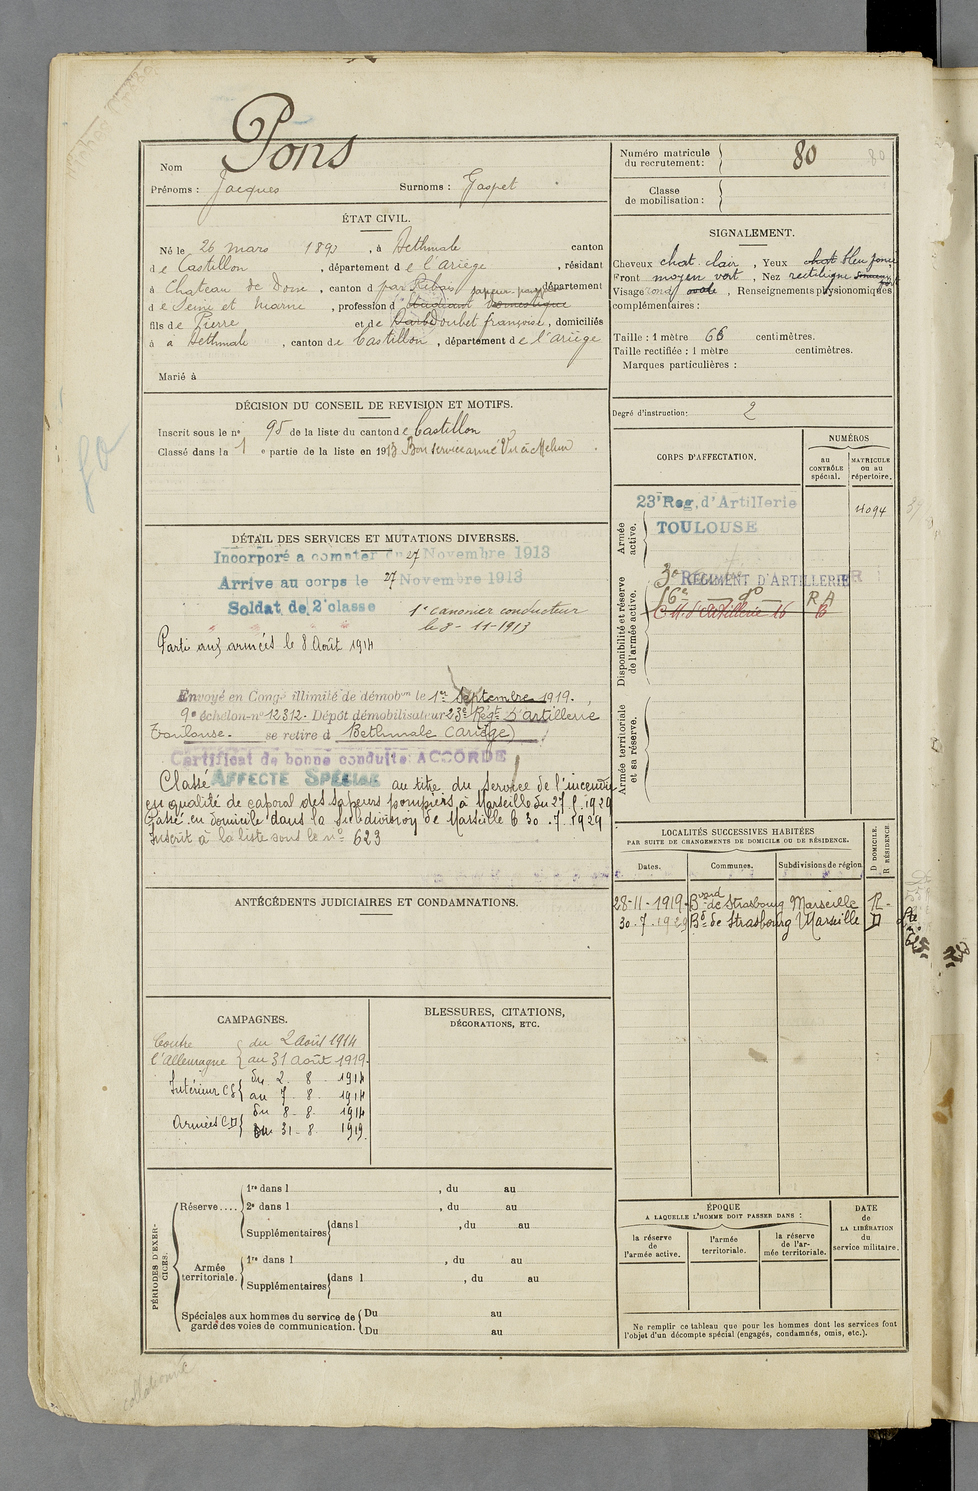 Nom Pons
Prénoms : Jacques Surnoms : Gaspet
Numéro matricule du recrutement : 80
80
Classe de mobilisation :
ÉTAT CIVIL.
Né le 26 mars 1893, à Bethmale canton
de Castillon, département de l'Ariège, résidant
à Chateau de Dome, canton d par Rebais département
sapeur pompier
de Seine et Marne, profession d' étudiant domestique
fils de Pierre et de Barbe Doubet françoise, domiciliés
à a Bethmale, canton de Castillon, département de l'ariège
Marié à
SIGNALEMENT.
Cheveux chat. clair, Yeux chat bleu foncé
Front moyen vert, Nez rectiligne
Visage rond ovale, Renseignements physionomiques
complémentaires :
Taille : 1 mètre 66 centimètres.
Taille rectifiée : 1 mètre centimètres.
Marques particulières :
Degré d'instruction : 2
DÉCISION DU CONSEIL DE REVISION ET MOTIFS.
Inscrit sous le n° 95 de la liste du canton de Castillon
Classé dans la 1e partie de la liste en 1913 Bon service armé Vu à Melun
CORPS D'AFFECTATION.
NUMÉROS
au CONTRÔLE spécial.
MATRICULE ou au répertoire.
Armée active.
23e Reg. d'Artillerie
TOULOUSE
4094
Disponibilité et réserve de l'armée active.
3e REGIMENT D'ARTILLERIE
16e — do — R A
C.M. d'Artillerie 16 B
Armée territoriale et sa réserve.
DÉTAIL DES SERVICES ET MUTATIONS DIVERSES.
Incorporé a compter du 27 Novembre 1913
Arrive au corps le 27 Novembre 1913
Soldat de 2e classe
1e canonier conducteur
le 8-11-1913
Parti aux armées le 8 Août 1914
Envoyé en Congé illimité de démobon le 1er Septembre 1919.
9e échelon-n° 12312. Dépôt démobilisateur 23e Régt D'artillerie
Toulouse. se retire à Bethmale (Ariège)
Certificat de bonne conduite ACCORDÉ
Classé AFFECTE SPECIAL au titre du Service de l'incendie
en qualité de caporal des sapeurs pompiers, à Marseille du 27.8.1929
Passé en domicile dans la Subdivision de Marseille le 30.7.1929
Inscrit à la liste sous le n° 623
LOCALITÉS SUCCESSIVES HABITÉES
PAR SUITE DE CHANGEMENTS DE DOMICILE OU DE RÉSIDENCE.
Dates. Communes. Subdivisions de région.
D DOMICILE. R RÉSIDENCE
28-11-1919 Bvard de Strasbourg Marseille R.
30.7.1929 Bd de Strasbourg Marseille D
ANTÉCÉDENTS JUDICIAIRES ET CONDAMNATIONS.
CAMPAGNES.
Contre l'Allemagne du 2 Août 1914
au 31 Août 1919.
Intérieur CS du 2 - 8 - 1914
au 7 - 8 - 1914
Armées CD du 8 - 8 - 1914
au 31 - 8 - 1919.
BLESSURES, CITATIONS,
DÉCORATIONS, ETC.
PÉRIODES D'EXERCICES.
Réserve.... 1re dans l , du au
2e dans l , du au
Supplémentaires dans l , du au
Armée territoriale. 1re dans l , du au
Supplémentaires dans l , du au
Spéciales aux hommes du service de garde des voies de communication. Du au
Du au
ÉPOQUE
A LAQUELLE L'HOMME DOIT PASSER DANS :
la réserve de l'armée active.
l'armée territoriale.
la réserve de l'armée territoriale.
DATE de LA LIBÉRATION du service militaire.
Ne remplir ce tableau que pour les hommes dont les services font
l'objet d'un décompte spécial (engagés, condamnés, omis, etc.).